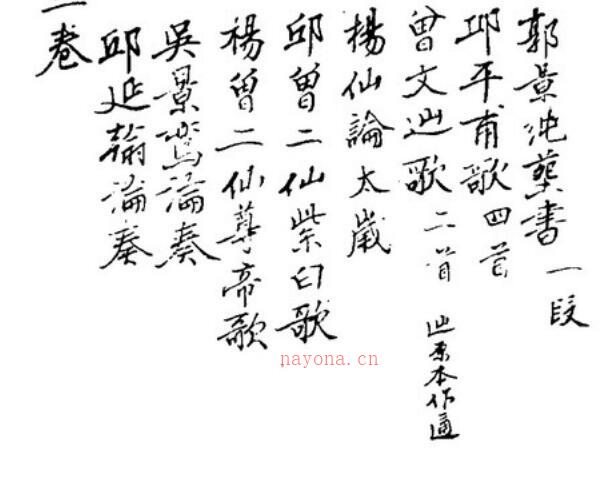 郭景沌葬書 一段
邱平甫歌 四首
曾文辿歌 二首 辿原本作遄
楊仙論太歲
邱曾二仙紫白歌
楊曾二仙尊帝歌
吳景鸞論奏
邱延翰論奏
一卷
nayona.cn